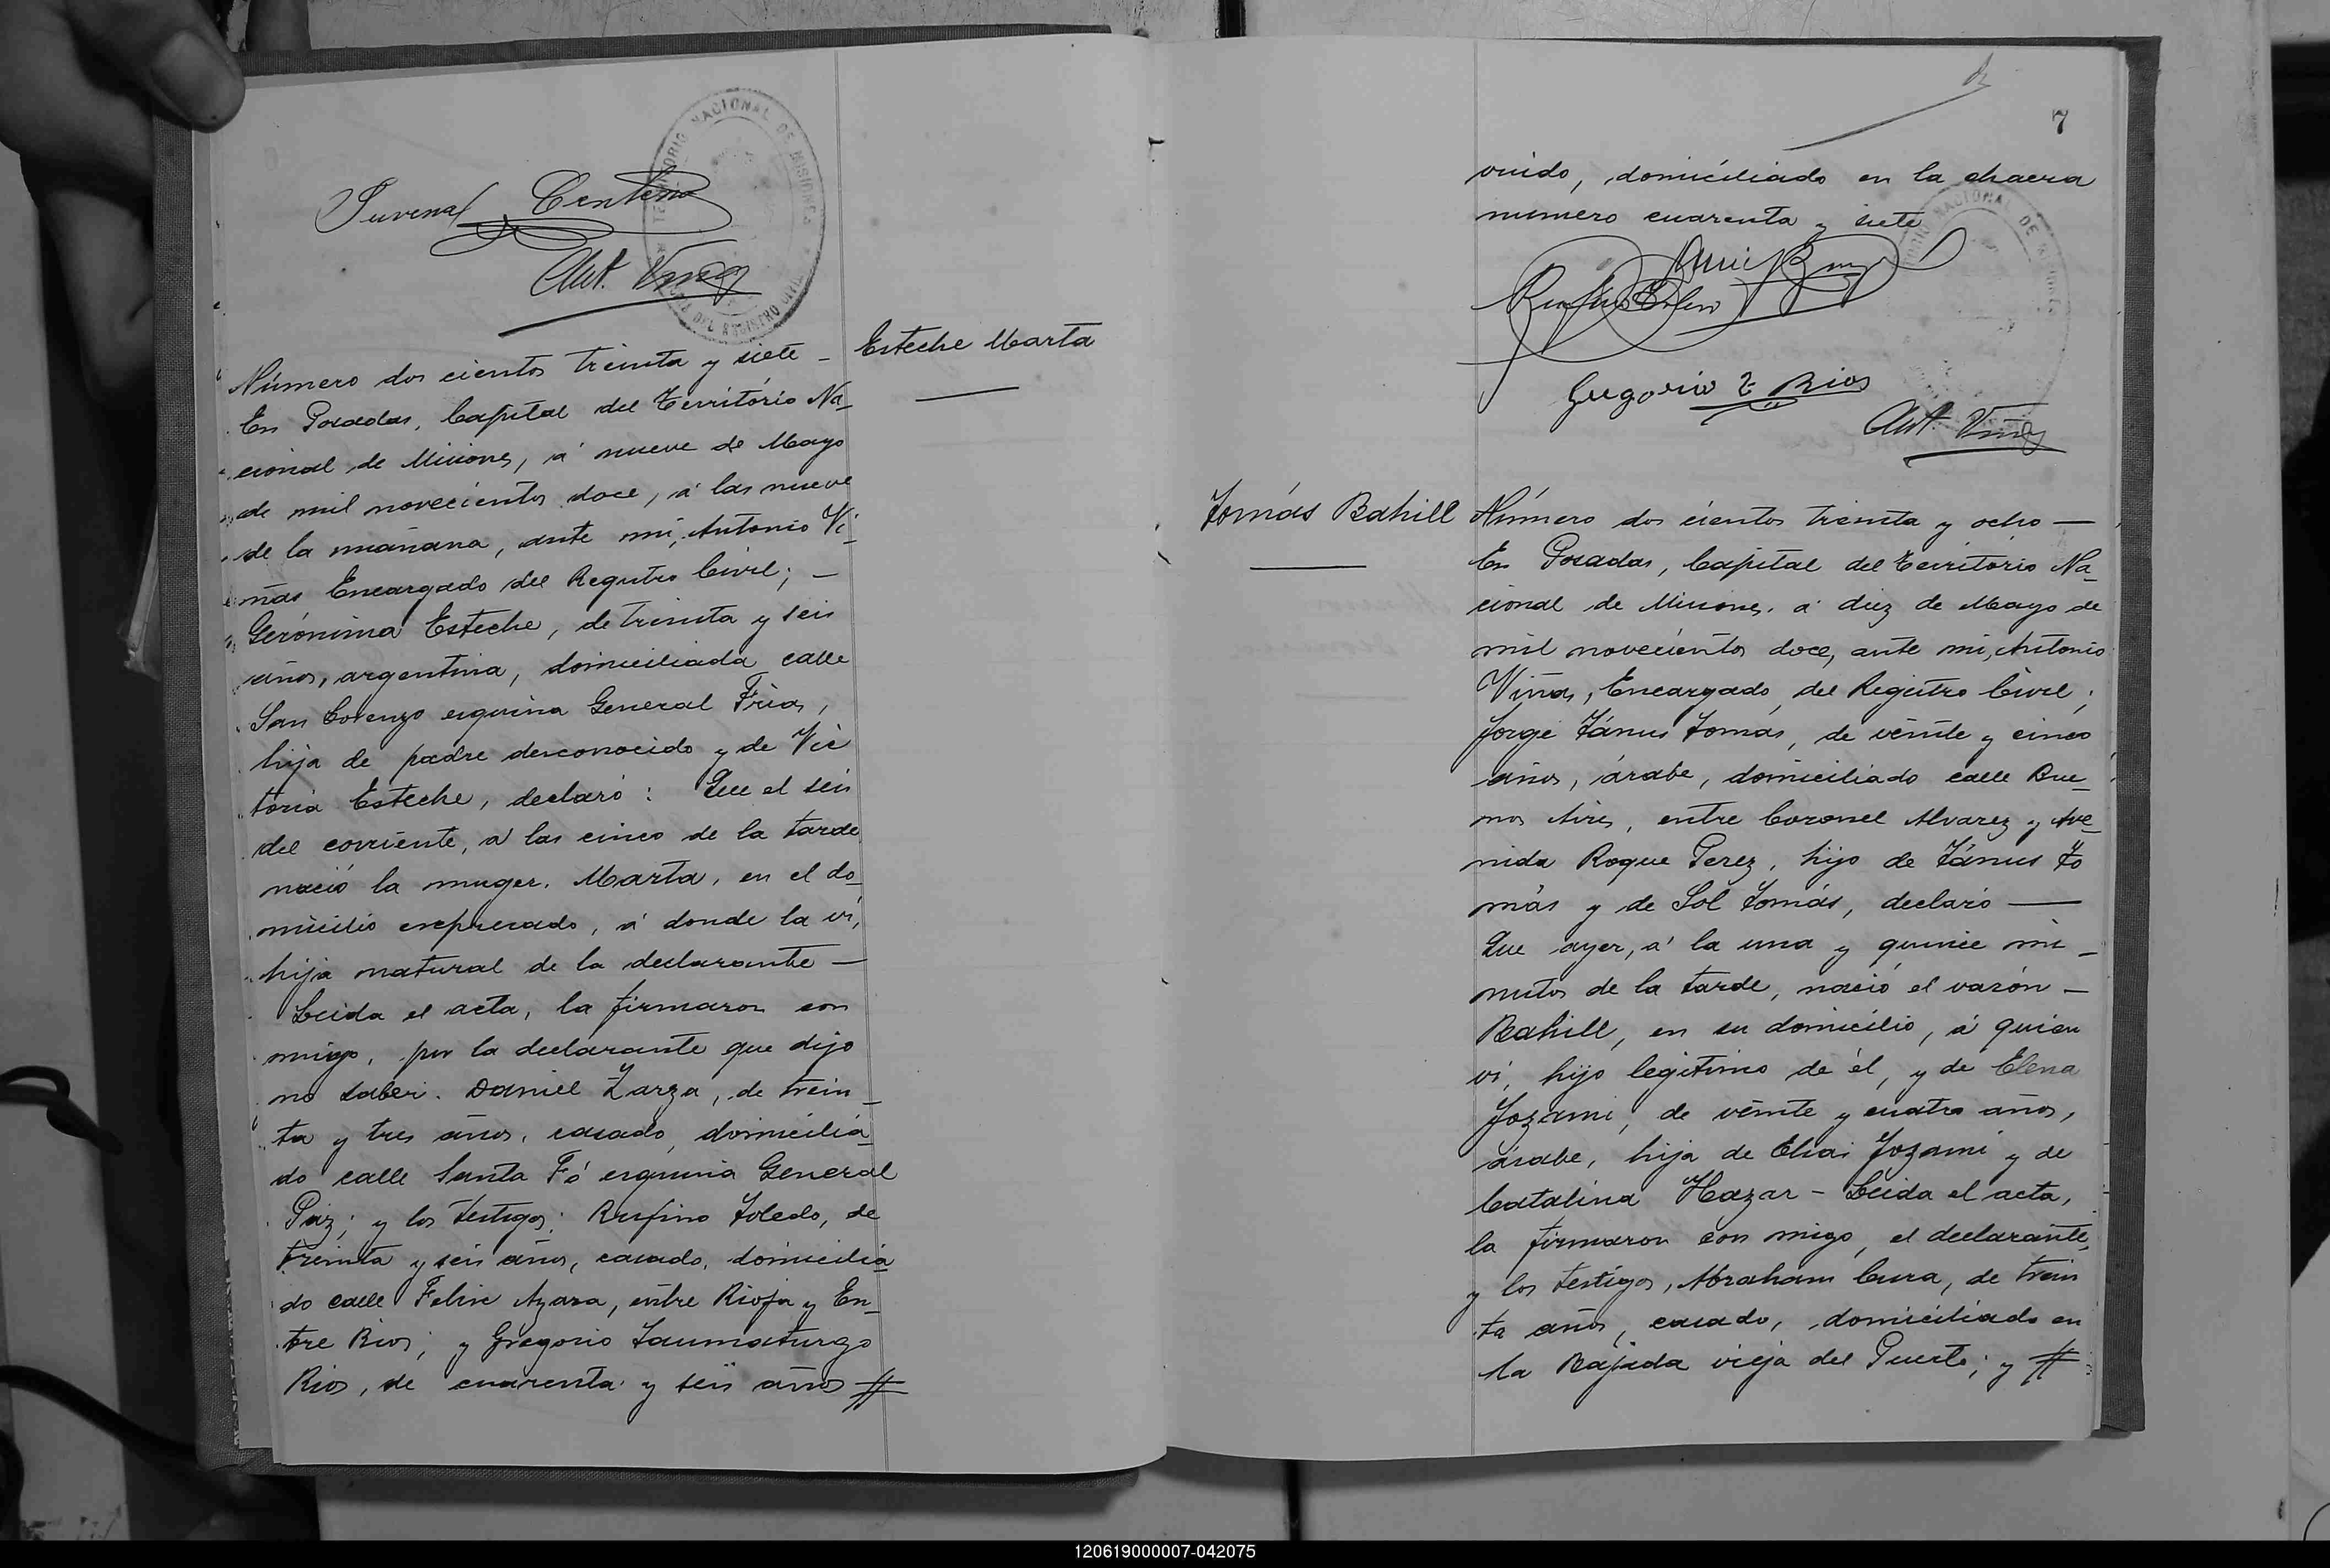 TERRITORIO NACIONAL DE MISIONES
DEL REGISTRO CIVIL
Juvenal Centeno
Ant. Viñas
Esteche Marta
Número dos cientos treinta y siete —
En Posadas, Capital del Território Na_
cional de Misiones, á nueve de Mayo
de mil novecientos doce, á las nueve
de la mañana, ante mi, Antonio Vi_
ñas Encargado del Registro Civil; —
Gerónima Esteche, de treinta y seis
años, argentina, domiciliada calle
San Lorenzo esquina General Frias,
hija de padre desconocido y de Vic
toria Esteche, declaró: Que el seis
del corriente, á las cinco de la tarde
nació la muger, Marta, en el do_
micilio expresado, á donde la ví,
hija natural de la declarante —
Leida el acta, la firmaron con
migo, por la declarante que dijo
no saber. Daniel Zarza, de trein_
ta y tres años, casado, domicilia_
do calle Santa Fé esquina General
Paz; y los testigos: Rufino Toledo, de
treinta y seis años, casado, domicilia
do calle Felix Azara, entre Rioja y En_
tre Rios; y Gregorio Taumaturgo
Rios, de cuarenta y seis años #
7
viudo, domiciliado en la chacra
numero cuarenta y siete
NACIONAL DE MISIONES
Gregorio T Rios
Ant. Viñas
Tomás Bahill
Número dos cientos treinta y ocho —
En Posadas, Capital del Território Na_
cional de Misiones, á diez de Mayo de
mil novecientos doce, ante mi, Antonio
Viñas, Encargado del Registro Civil;
Jorge Tánus Tomás, de veinte y cinco
años, árabe, domiciliado calle Bue_
nos Aires, entre Coronel Alvarez y Ave_
nida Roque Perez, hijo de Tánus To
más y de Sol Tomás, declaró —
Que ayer, á la una y quince mi_
nutos de la tarde, nació el varón —
Bahill, en su domicilio, á quien
ví, hijo legitimo de él, y de Elena
Jozami, de veinte y cuatro años,
árabe, hija de Elias Jozami y de
Catalina Hazar — Leida el acta,
la firmaron con migo, el declarante,
y los testigos, Abraham Cura, de trein
ta años, casado, domiciliado en
la Bajada vieja del Puerto; y #
120619000007-042075